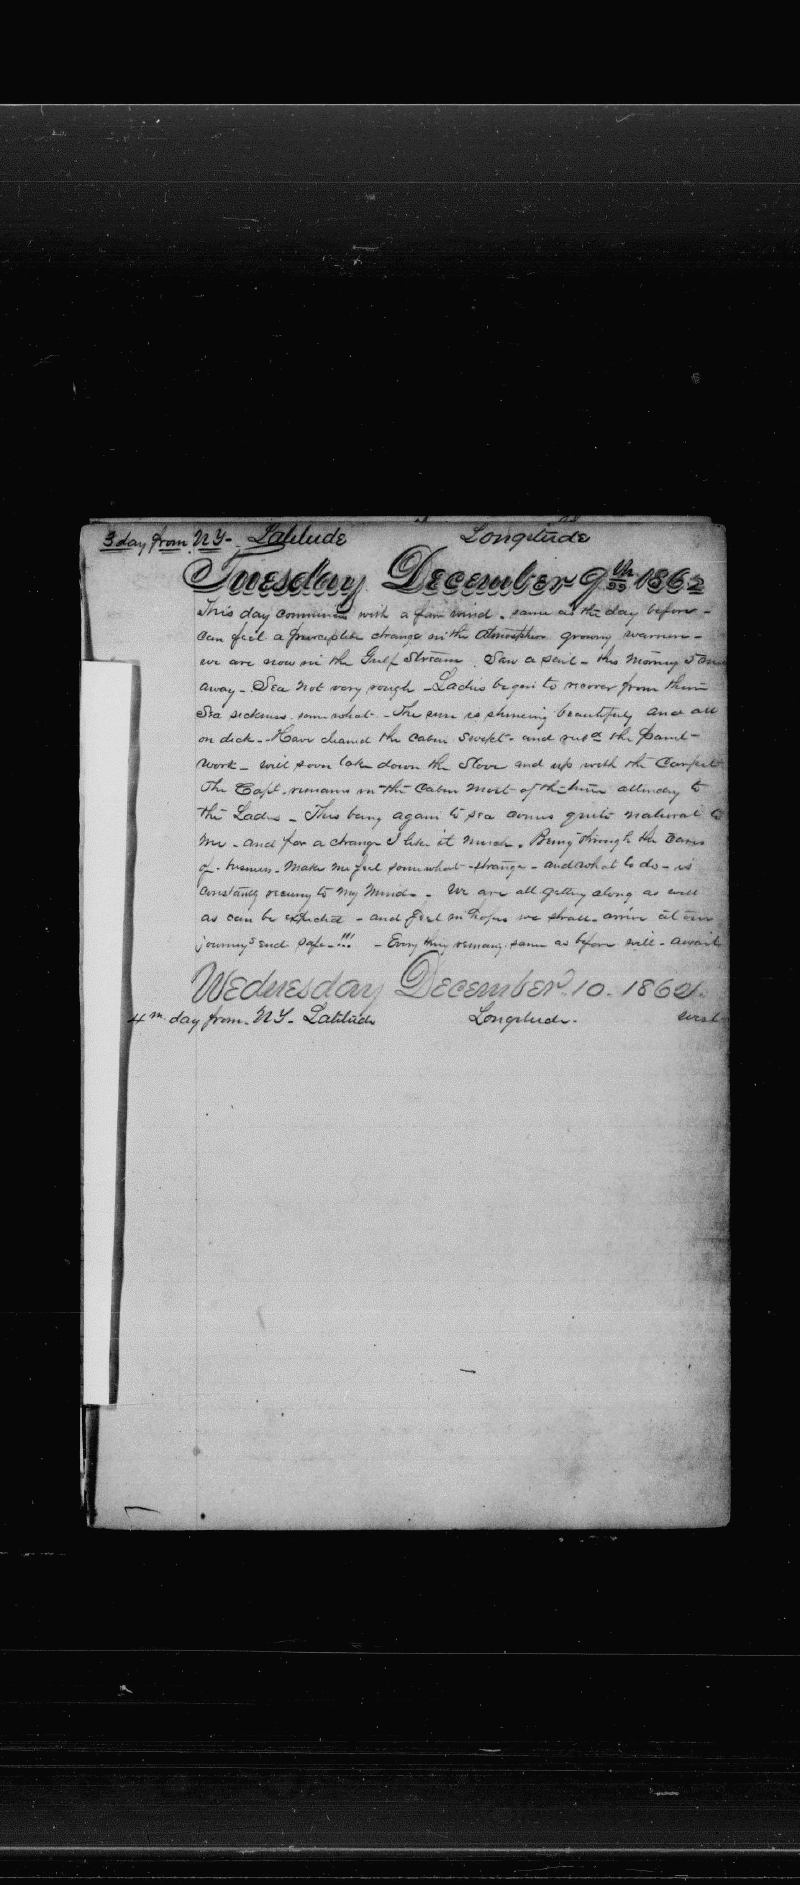 3 day from N.Y- Latitude Longitude
Tuesday December 9th 1862
This day commences with a fair wind. same as the day before -
can feel a preceptible change in the Atmosphere growing warmer -
we are now in the Gulf Stream. Saw a sail - this morning 5
away - Sea not very rough - Ladies begin to recover from their
Sea sickness somewhat - The sun is shineing beautifuly and all
on deck - Have cleaned the Cabin Swept - and the Paint -
work - will soon take down the Stove and up with the Carpet
The Capt. remains in the Cabin most of the time attending to
the Ladies - This being again to sea comes quite natural to
me - and for a change I like it much. Being through the Cares
of - business - Makes me feel somewhat - strange - and what to do - is
constantly to my Mind - We are all getting along as well
as can be expected - and feel in hopes we shall - arrive at our
journeys end safe - !!! - Every thing remains same as before will - await
Wednesday December 10. 1862.
4th day from - NY - Latitude Longitude - west